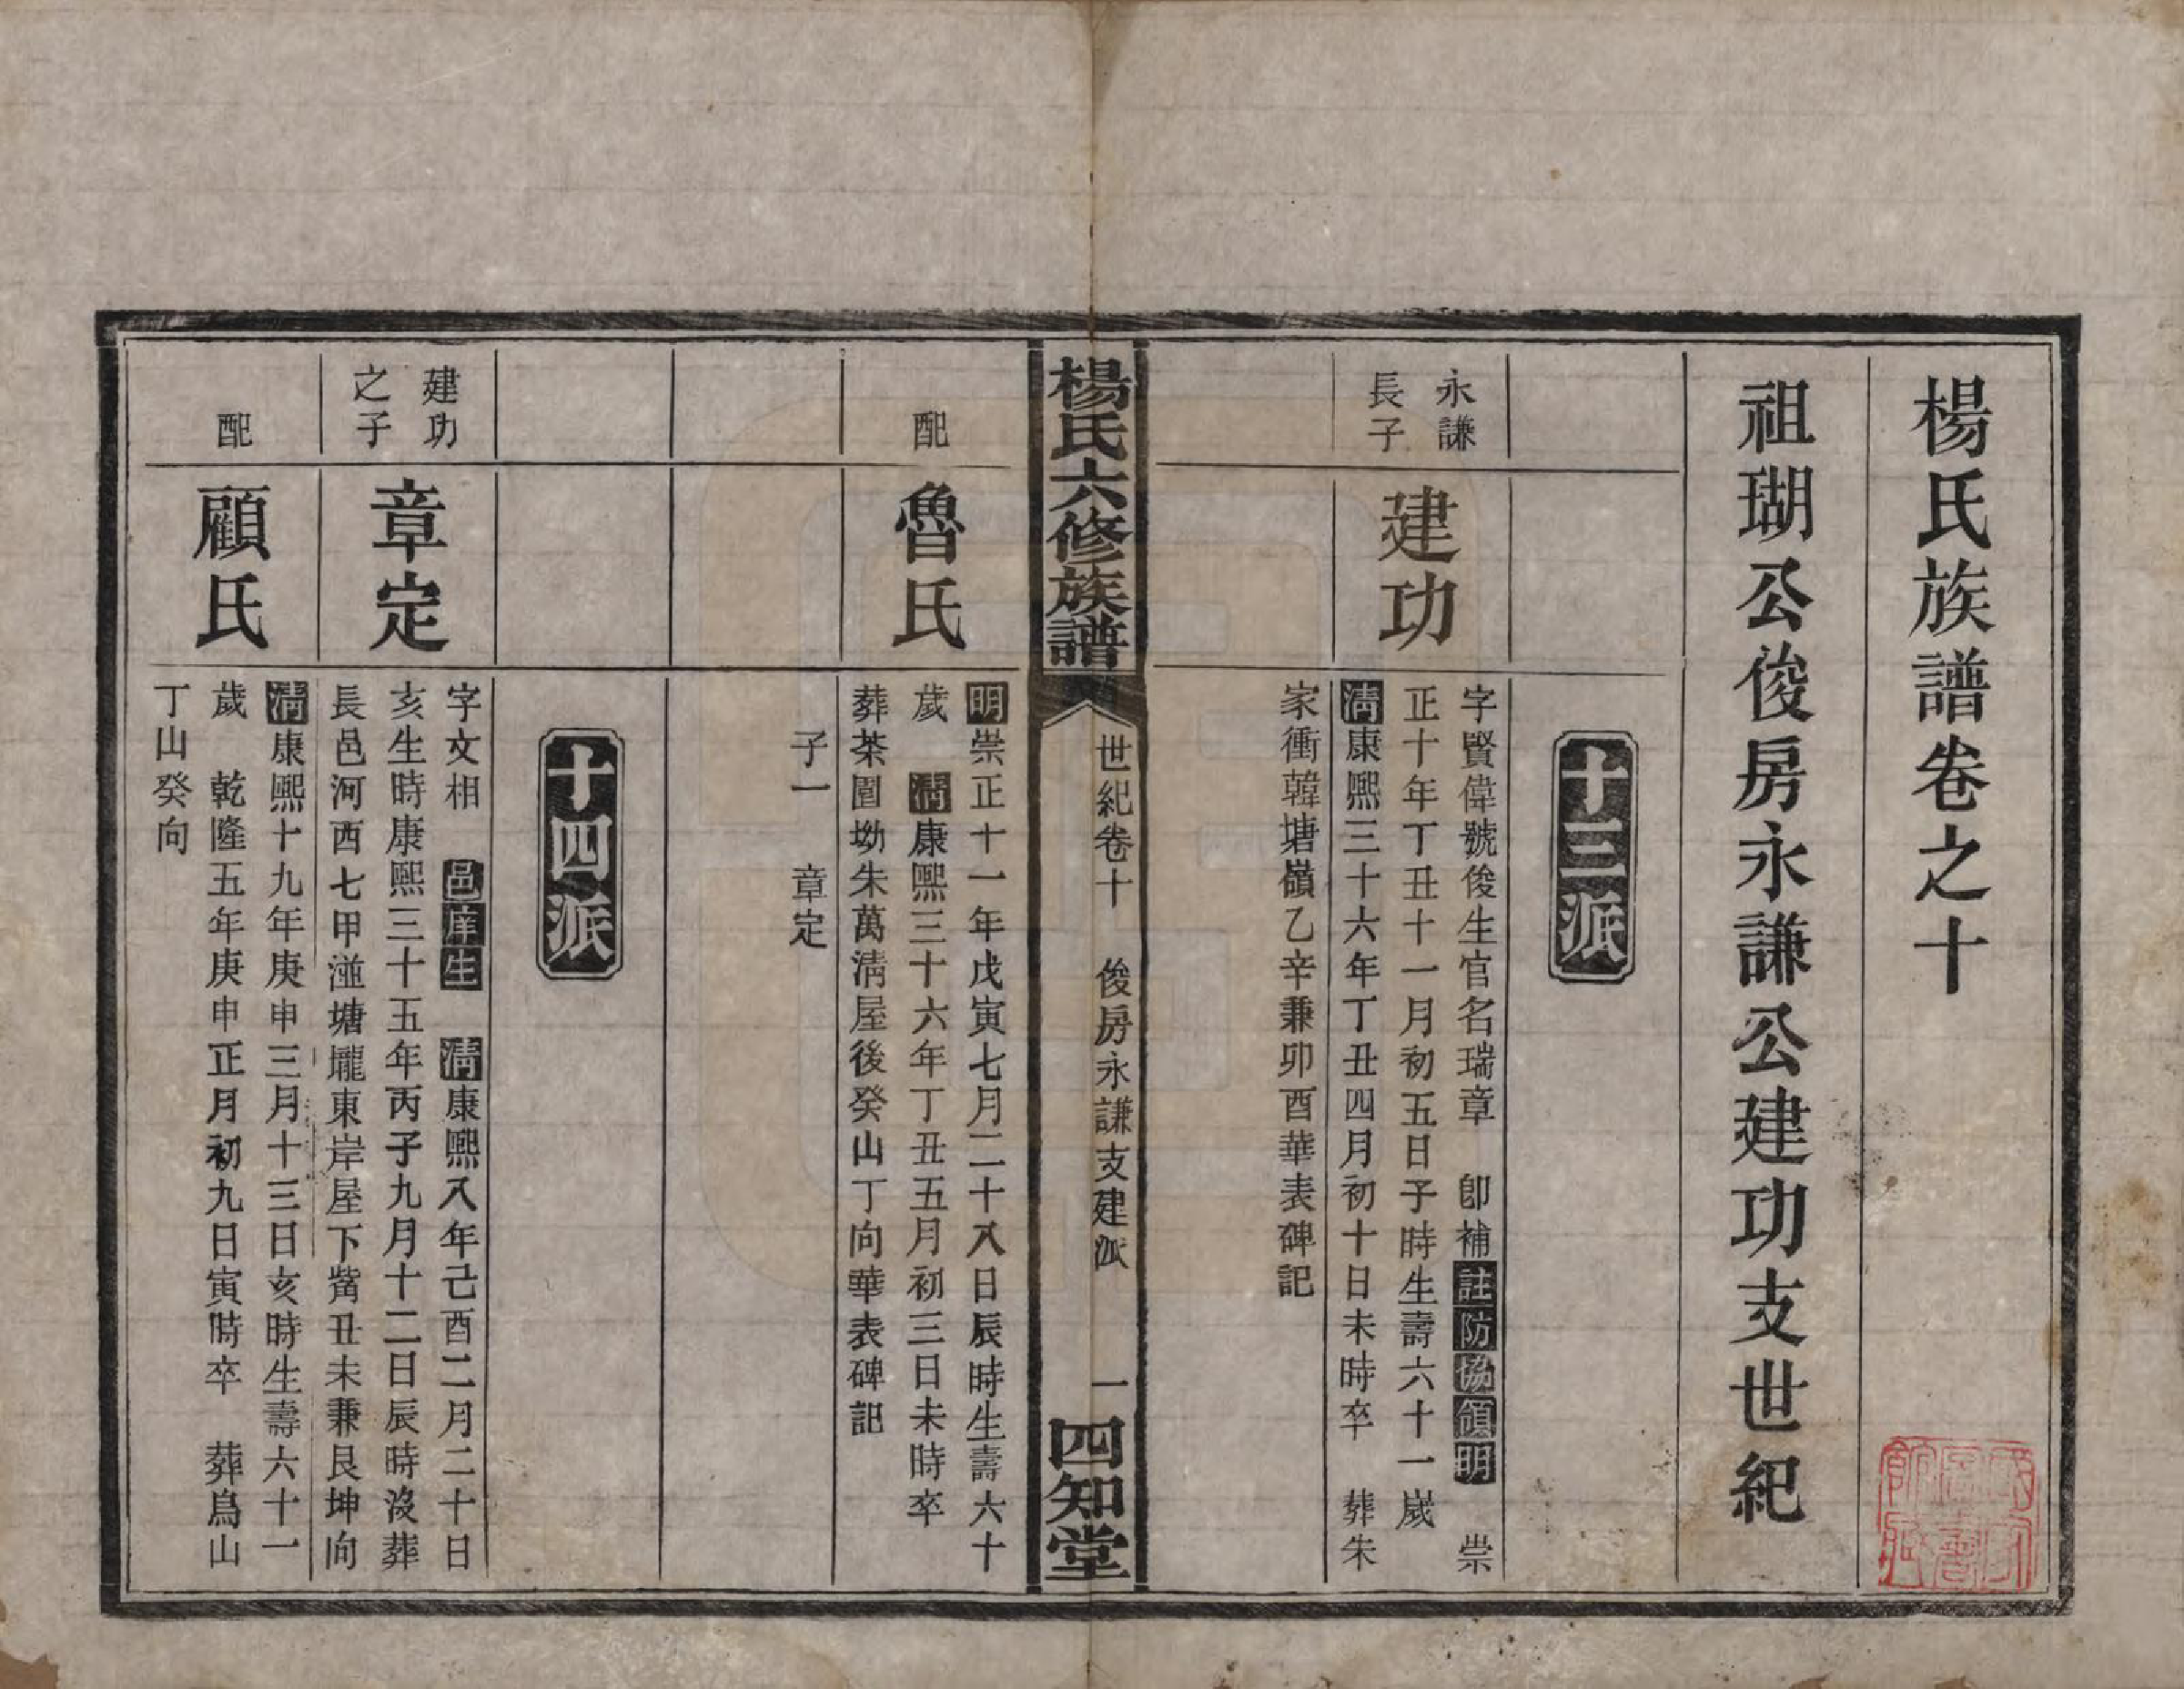 楊氏族譜卷之十
祖瑚公俊房永謙公建功支世紀
十三派
永謙
長子
建功
字賢偉號俊生官名瑞章　卽補註防協領明　崇
正十年丁丑十一月初五日子時生壽六十一歲
清康熙三十六年丁丑四月初十日未時卒　葬朱
家衝韓塘嶺乙辛兼卯酉華表碑記
楊氏六修族譜
世紀卷十　俊房永謙支建派
一
四知堂
配
魯氏
明崇正十一年戊寅七月二十八日辰時生壽六十
歲　清康熙三十六年丁丑五月初三日未時卒
葬茶園坳朱萬清屋後癸山丁向華表碑記
子一　章定
十四派
建功
之子
章定
字文相　邑庠生　清康熙八年己酉二月二十日
亥生時康熙三十五年丙子九月十二日辰時沒葬
長邑河西七甲湴塘壠東岸屋下觜丑未兼艮坤向
配
顧氏
清康熙十九年庚申三月十三日亥時生壽六十一
歲　乾隆五年庚申正月初九日寅時卒　葬烏山
丁山癸向